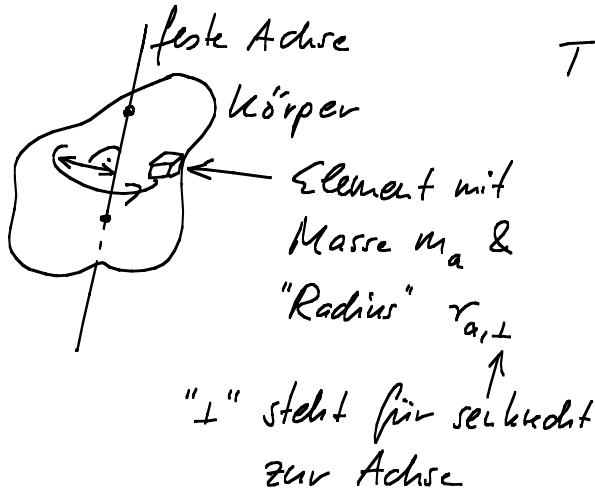 feste Achse
T
Körper
Element mit
Masse m_a &
"Radius" r_{a,⊥}
"⊥" steht für senkrecht
zur Achse